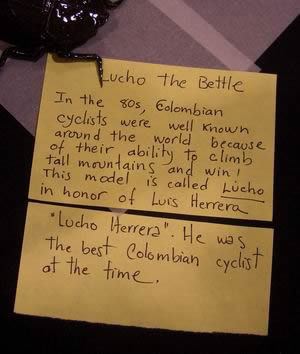 Lucho The Bettle
In the 80s, Colombian
cyclists were well known
around the world because
of their ability to climb
tall mountains and win!
This model is called Lucho
in honor of Luis Herrera
"Lucho Herrera". He was
the best Colombian cyclist
at the time.